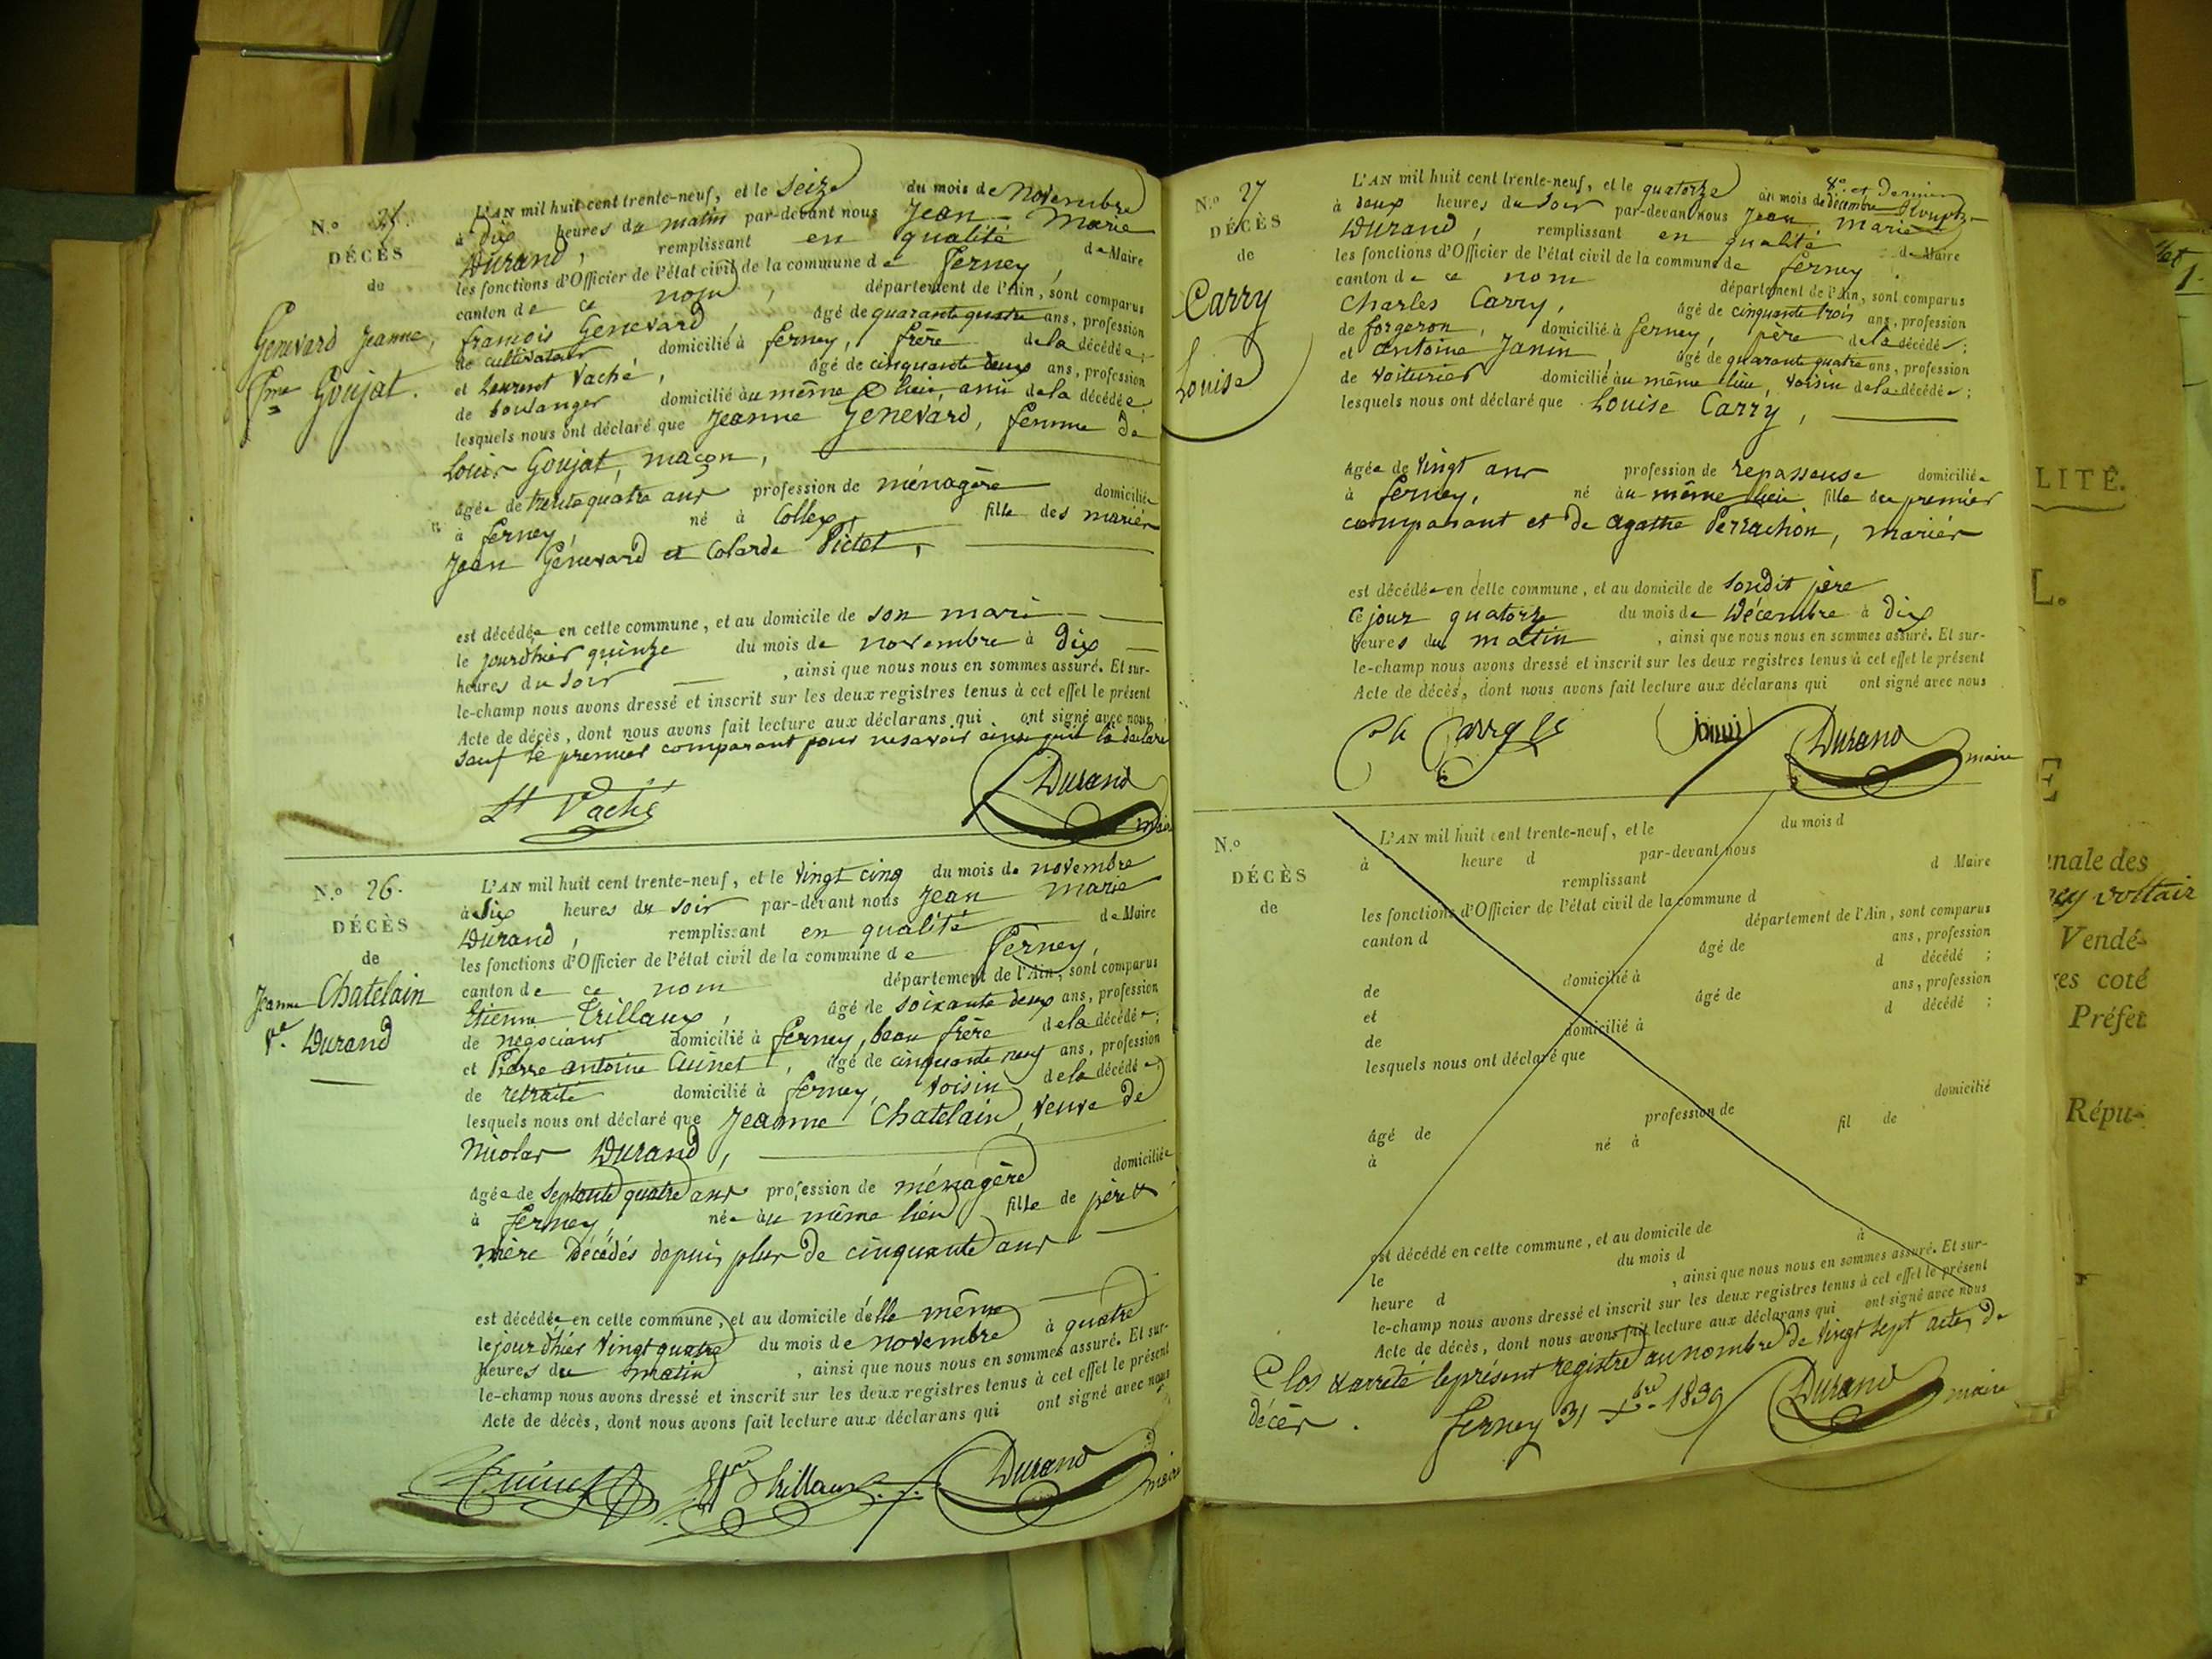 N.o 25.
DÉCÈS
de
Genevard Jeanne,
fme Goujat.
L'AN mil huit cent trente-neuf, et le Seize du mois de Novembre
à dix heures du matin par-devant nous Jean Marie
Durand, remplissant en qualité de Maire
les fonctions d'Officier de l'état civil de la commune de ferney,
canton de ce nom, département de l'Ain, sont comparus
françois Genevard, âgé de quarante quatre ans, profession
de cultivateur, domicilié à ferney, frère de la décédée;
et Laurent Vaché, âgé de cinquante deux ans, profession
de boulanger domicilié au même lieu, ami de la décédée,
lesquels nous ont déclaré que Jeanne Genevard, femme de
Louis Goujat, maçon,
âgée de trente quatre ans profession de ménagère domiciliée
à ferney, né à Collex, fille des mariés
Jean Génevard et Colarde Pictet,
est décédée en cette commune, et au domicile de son mari
le jourd'hier quinze du mois de novembre à dix
heures du soir, ainsi que nous nous en sommes assuré. Et sur-
le-champ nous avons dressé et inscrit sur les deux registres tenus à cet effet le présent
Acte de décès, dont nous avons fait lecture aux déclarans qui ont signé avec nous,
sauf le premier comparant pour ne savoir ainsi qu'il l'a déclaré
Lt Vaché Durand maire
N.o 26.
DÉCÈS
de
Jeanne Chatelain
Ve. Durand
L'AN mil huit cent trente-neuf, et le vingt cinq du mois de novembre
à Six heures du soir par-devant nous Jean Marie
Durand, remplissant en qualité de Maire
les fonctions d'Officier de l'état civil de la commune de Ferney,
canton de ce nom département de l'Ain, sont comparus
Etienne Trillaux, âgé de soixante deux ans, profession
de négociant domicilié à ferney, beau frère de la décédée;
et Pierre antoine Cuinet, âgé de cinquante neuf ans, profession
de retraité domicilié à ferney, voisin de la décédée,
lesquels nous ont déclaré que Jeanne Chatelain, veuve de
Nicolas Durand,
âgée de Septante quatre ans profession de ménagère domiciliée
à ferney, née au même lieu, fille de père &
mère décédés depuis plus de cinquante ans
est décédée en cette commune, et au domicile d'elle même
le jour d'hier vingt quatre du mois de novembre à quatre
heures du matin, ainsi que nous nous en sommes assuré. Et sur-
le-champ nous avons dressé et inscrit sur les deux registres tenus à cet effet le présent
Acte de décès, dont nous avons fait lecture aux déclarans qui ont signé avec nous
Cuinet Trillaux Durand maire
N.o 27
DÉCÈS
de
Carry
Louise
8e. et Dernier
L'AN mil huit cent trente-neuf, et le quatorze du mois de décembre
à deux heures du soir par-devant nous Jean marie
Durand, remplissant en qualité de Maire
les fonctions d'Officier de l'état civil de la commune de ferney,
canton de ce nom département de l'Ain, sont comparus
Charles Carry, âgé de cinquante trois ans, profession
de forgeron, domicilié à ferney, père de la décédée;
et antoine Janin, âgé de quarante quatre ans, profession
de voiturier domicilié au même lieu, voisin de la décédée;
lesquels nous ont déclaré que Louise Carry,
âgée de vingt ans profession de repasseuse domiciliée
à ferney, né au même lieu fille du premier
comparant et de agathe Perrachon, mariés
est décédée en cette commune, et au domicile de sondit père
ce jour quatorze du mois de Décembre à dix
heures du matin, ainsi que nous nous en sommes assuré. Et sur-
le-champ nous avons dressé et inscrit sur les deux registres tenus à cet effet le présent
Acte de décès, dont nous avons fait lecture aux déclarans qui ont signé avec nous
Ch Carry janin Durand maire
N.o
DÉCÈS
de
L'AN mil huit cent trente-neuf, et le du mois d
à heure d par-devant nous
remplissant d Maire
les fonctions d'Officier de l'état civil de la commune d
canton d département de l'Ain, sont comparus
âgé de ans, profession
de domicilié à d décédé ;
et âgé de ans, profession
de domicilié à d décédé ;
lesquels nous ont déclaré que
âgé de profession de domicilié
à né à fil de
est décédé en cette commune, et au domicile de
le du mois d à
heure d , ainsi que nous nous en sommes assuré. Et sur-
le-champ nous avons dressé et inscrit sur les deux registres tenus à cet effet le présent
Acte de décès, dont nous avons fait lecture aux déclarans qui ont signé avec nous
Clos & arrêté le présent registre au nombre de vingt sept actes de
décès. ferney 31 Xbre 1839 Durand maire
LITÉ.
L.
E
nale des
ney voltair
Vendé-
res coté
Préfet
Répu-